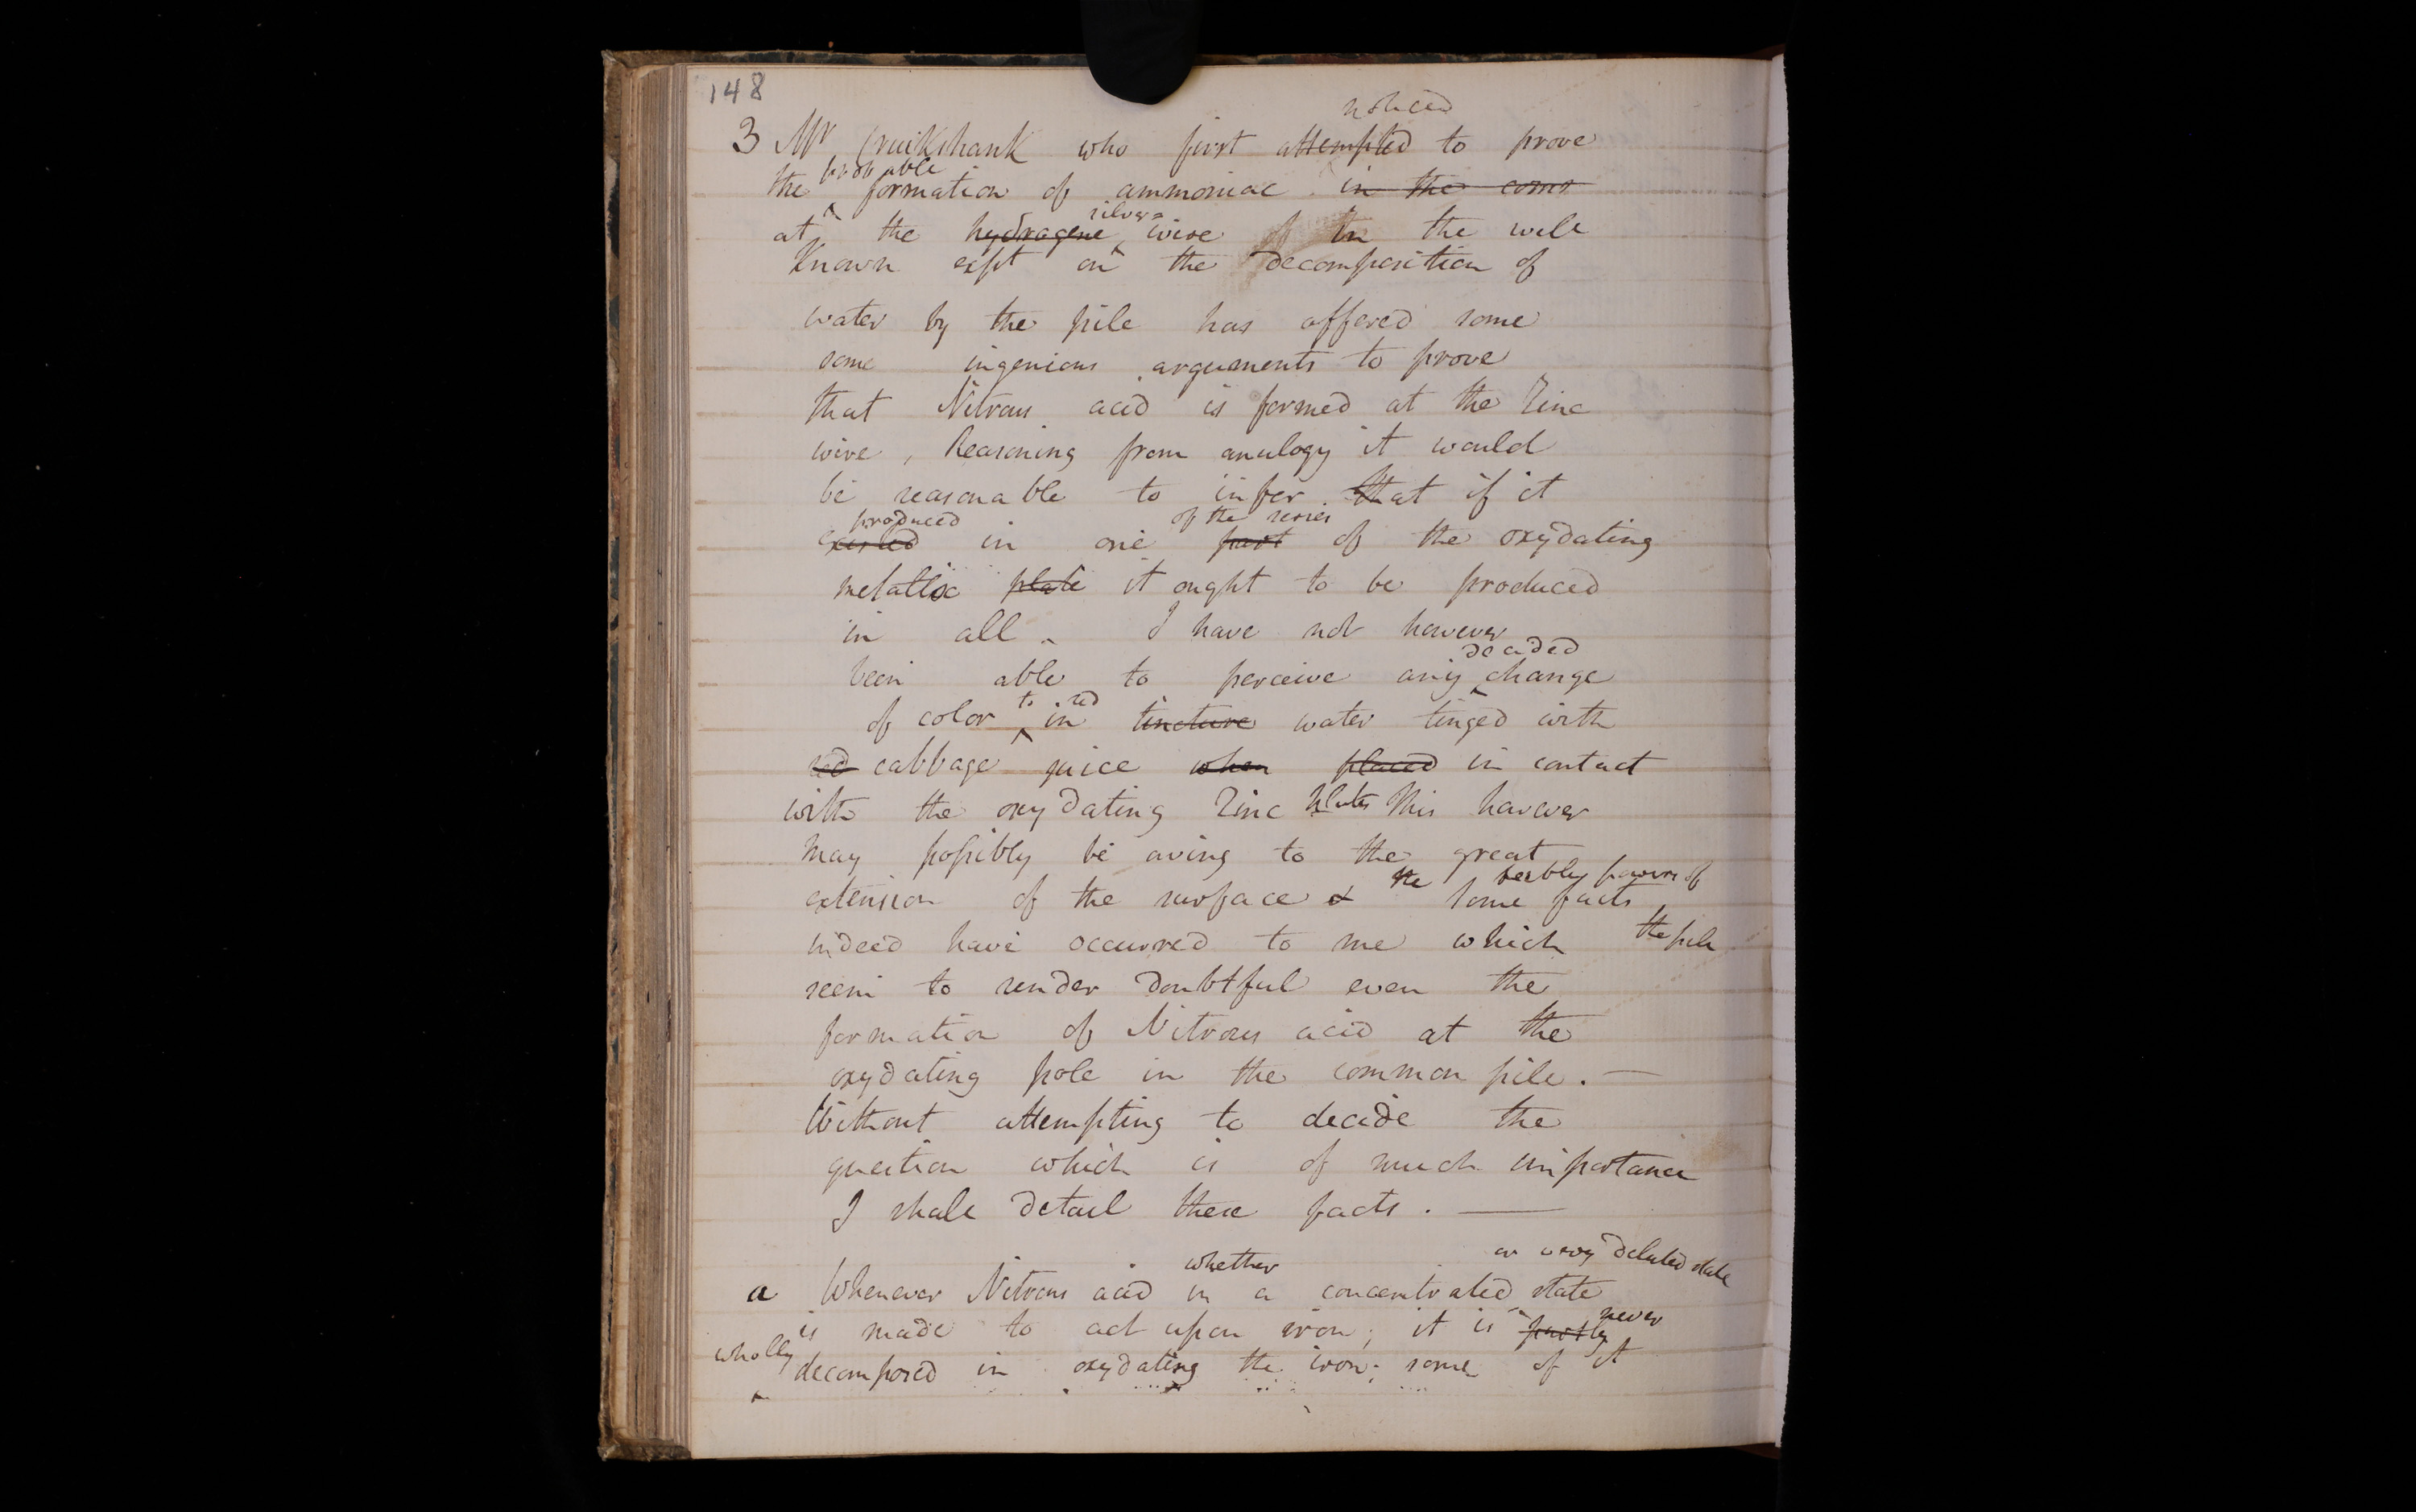 148
noticed
3 Mr Cruikshank who first attempted to prove
probable
the formation of ammoniac in the comr
silver
at the hydrogene wire of in the well
known expt on the decomposition of
water by the pile has offered some
some ingenious arguments to prove
that Nitrous acid is formed at the Zinc
wire, Reasoning from analogy it would
be reasonable to infer that if it
produced of the series
exerted in one part of the oxydating
metallic plate it ought to be produced
in all. I have not however
decided
been able to perceive any change
to red
of color in tincture water tinged with
red cabbage juice when placed in contact
with the oxydating Zinc plates This however
may possibly be owing to the great
the feebly powers of
extension of the surface & some facts
the pile
indeed have occurred to me which
seem to render doubtful even the
formation of Nitrous acid at the
oxydating pole in the common pile. —
Without attempting to decide the
question which is of much importance
I shall detail these facts. —
whether or very diluted state
a Whenever Nitrous acid in a concentrated state
never
is made to act upon iron; it is partly
wholly decomposed in oxydating the iron; some of it